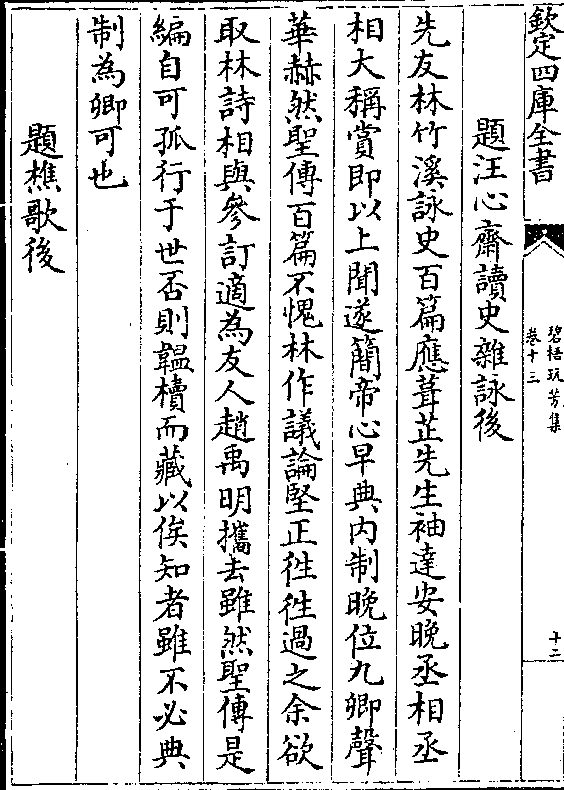 欽定四庫全書
碧梧玩芳集
卷十三
十二
題汪心齋讀史雜詠後
先友林竹溪詠史百篇應葺芷先生袖達安晚丞相丞
相大稱賞即以上聞遂簡帝心早典内制晚位九卿聲
華赫然聖傳百篇不愧林作議論堅正徃徃過之余欲
取林詩相與參訂適為友人趙禹明攜去雖然聖傳是
編自可孤行于世否則韞櫝而藏以俟知者雖不必典
制為卿可也
題樵歌後